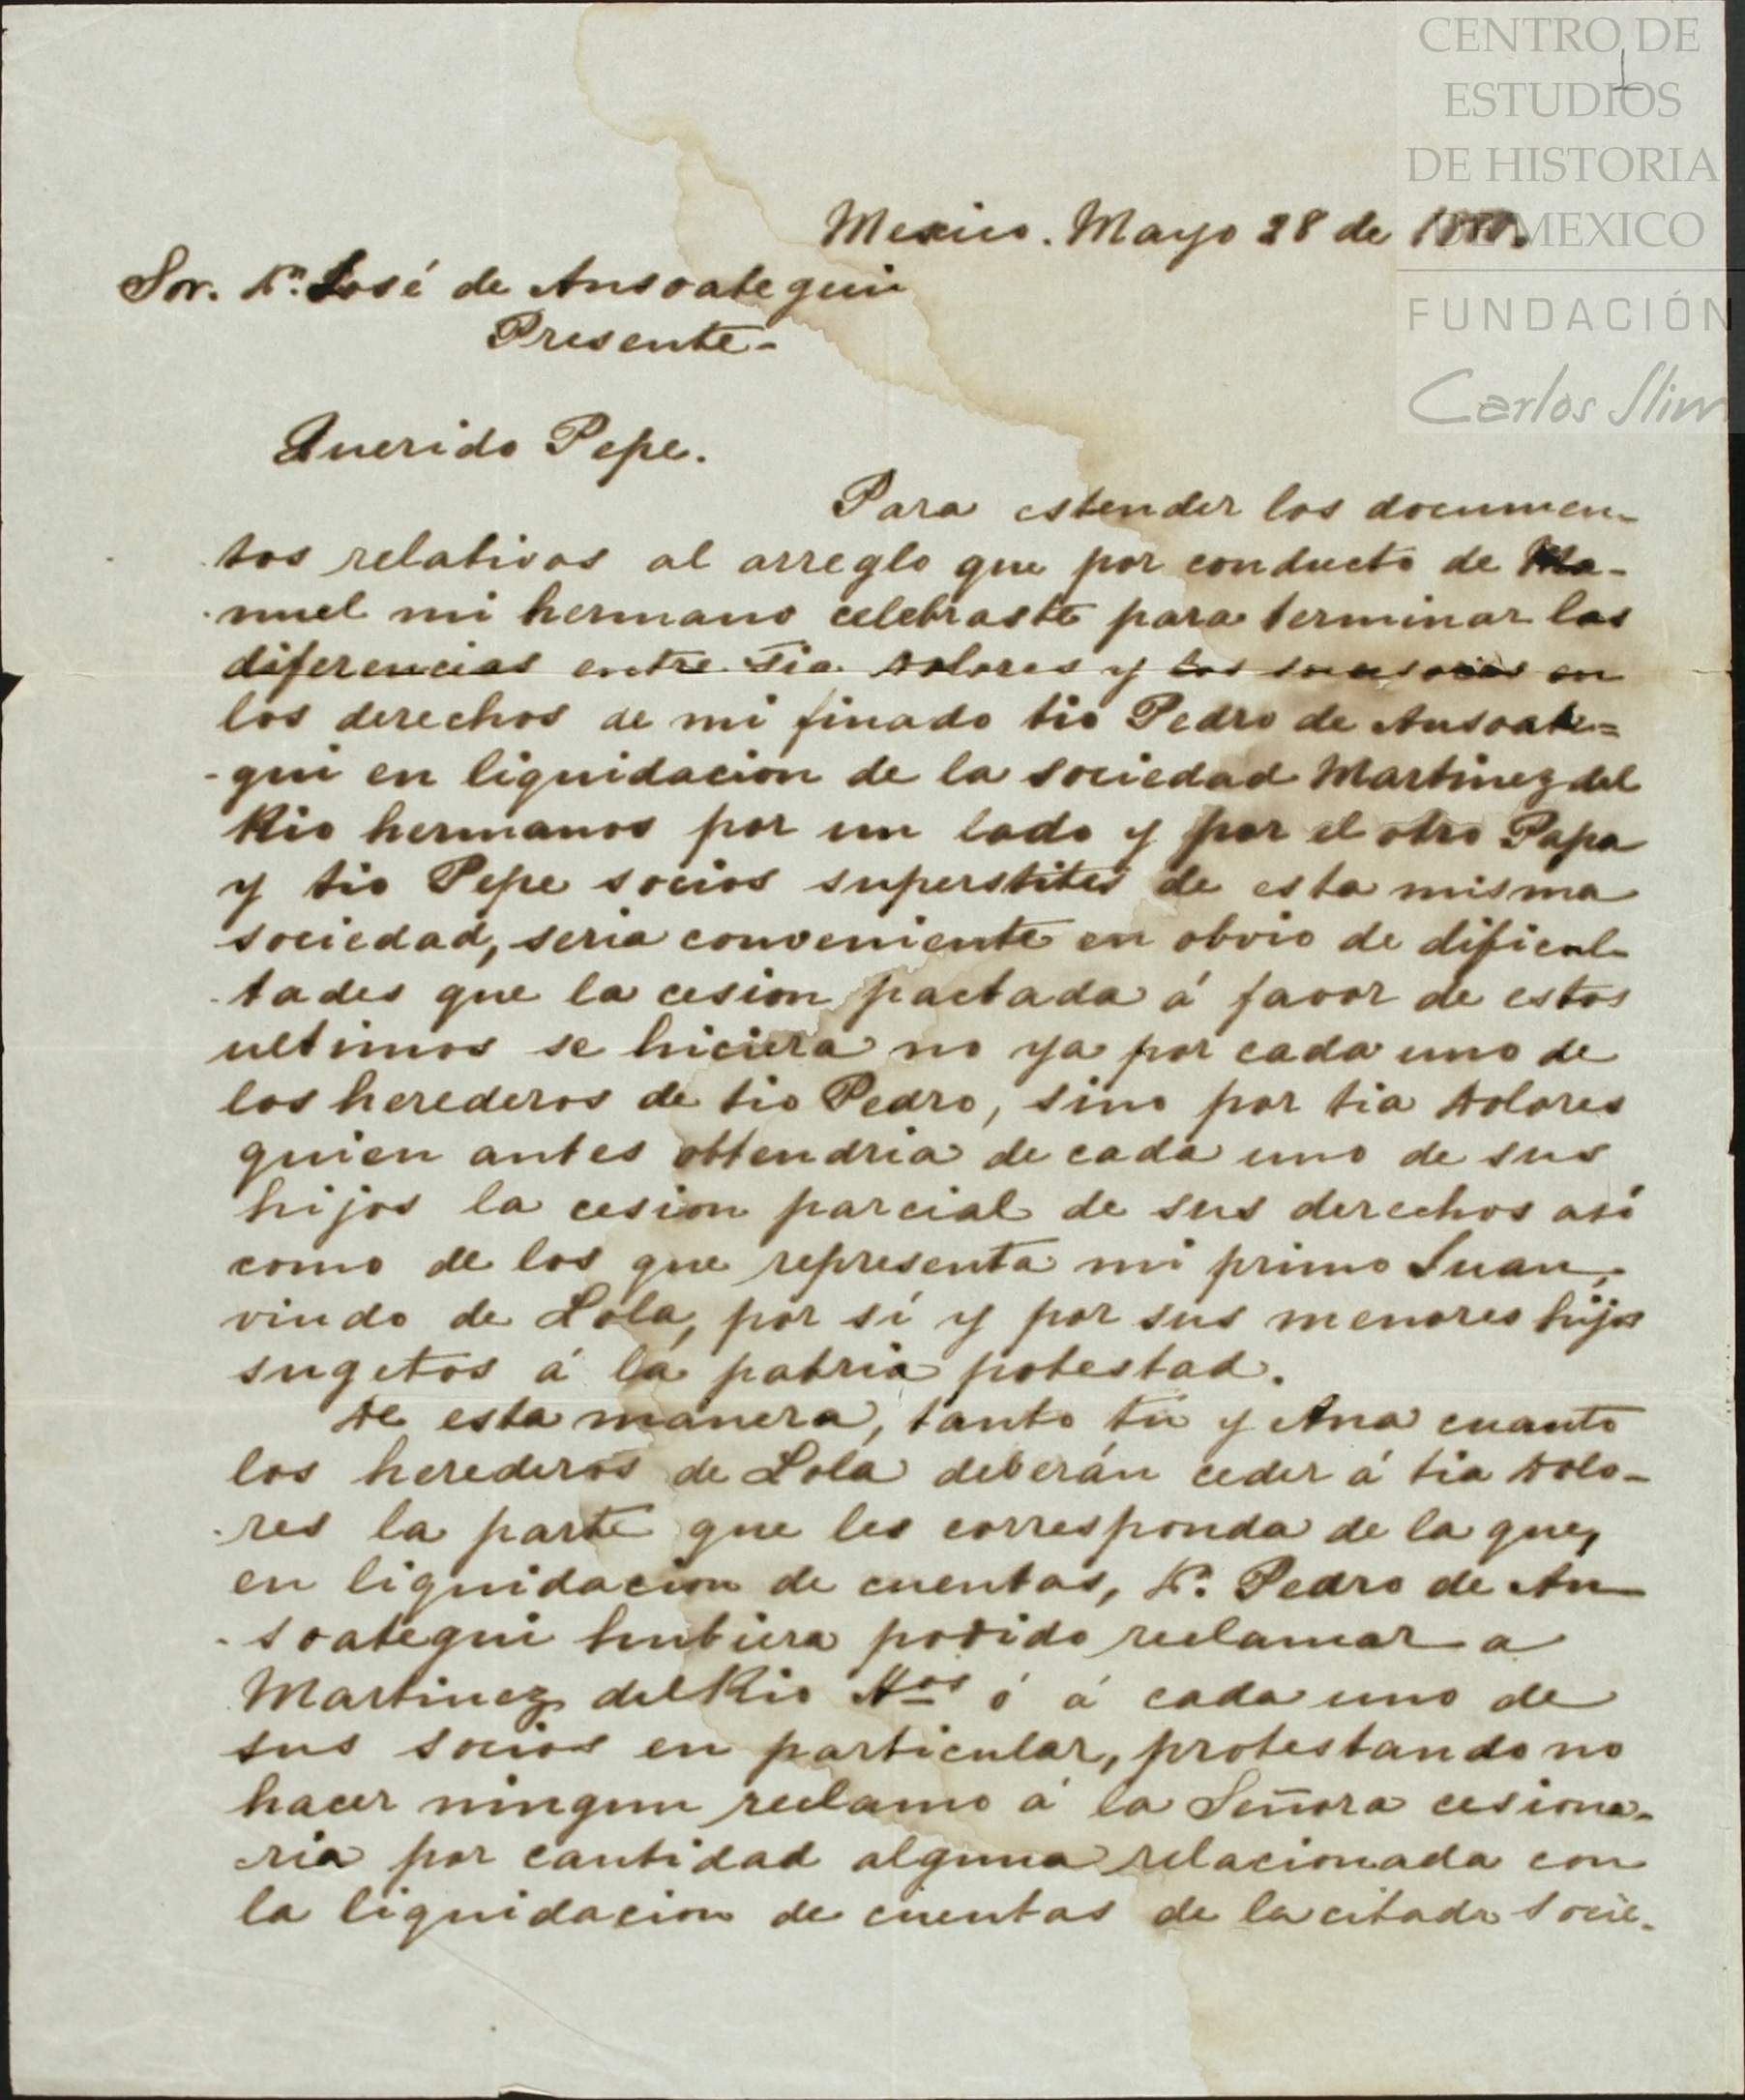 CENTRO DE
ESTUDIOS
DE HISTORIA
DE MEXICO
FUNDACIÓN
Carlos Slim
1
Mexico. Mayo 28 de
Sor. Dn. José de Ansoategui
Presente-
Querido Pepe.
Para estender los documen-
tos relativos al arreglo que por conducto de Ma-
nuel mi hermano celebraste para terminar las
diferencias entre tia Dolores y los sucesores en
los derechos de mi finado tio Pedro de Ansoate=
-gui en liquidacion de la sociedad Martinez del
Rio hermanos por un lado y por el otro Papa
y tio Pepe socios superstites de esta misma
sociedad, seria conveniente en obvio de dificul-
-tades que la cesion pactada á favor de estos
ultimos se hiciera no ya por cada uno de
los herederos de tio Pedro, sino por tia Dolores
quien antes obtendria de cada uno de sus
hijos la cesion parcial de sus derechos así
como de los que representa mi primo Juan,
viudo de Lola, por sí y por sus menores hijos
sugetos á la patria potestad.
De esta manera, tanto tú y Ana cuanto
los herederos de Lola deberán ceder á tia Dolo-
-res la parte que les corresponda de la que,
en liquidacion de cuentas, Dn. Pedro de An
-soategui hubiera podido reclamar a
Martinez del Rio Hos ó á cada uno de
sus socios en particular, protestando no
hacer ningun reclamo á la Señora cesiona-
ria por cantidad alguna relacionada con
la liquidacion de cuentas de la citada socie-